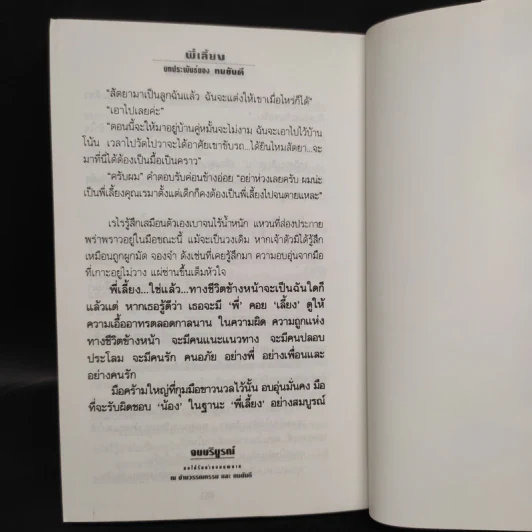 พี่เลี้ยง
บทประพันธ์ของ ทมยันตี
“สัตยามาเป็นลูกฉันแล้ว ฉันจะแต่งให้เขาเมื่อไหร่ก็ได้”
“เอาไปเลยค่ะ”
“ตอนนี้จะให้มาอยู่บ้านคู่หมั้นจะไม่งาม ฉันจะเอาไปไว้บ้าน
โน้น เวลาไปวัดไปวาจะได้อาศัยเขาขับรถ...ได้ยินไหมสัตยา...จะ
มาที่นี่ได้ต้องเป็นมื้อเป็นคราว”
“ครับผม” คำตอบรับค่อนข้างอ่อย “อย่าห่วงเลยครับ ผมน่ะ
เป็นพี่เลี้ยงคุณเรมาตั้งแต่เด็กก็คงต้องเป็นพี่เลี้ยงไปจนตายแหละ”
เรไรรู้สึกเสมือนตัวเองเบาจนไร้น้ำหนัก แหวนที่ส่องประกาย
พร่าพราวอยู่ในมือขณะนี้ แม้จะเป็นวงเดิม หากเจ้าตัวมิได้รู้สึก
เหมือนถูกผูกมัด จองจำ ดังเช่นที่เคยรู้สึกมา ความอบอุ่นจากมือ
ที่เกาะอยู่ไม่วาง แผ่ซ่านขึ้นเต็มหัวใจ
พี่เลี้ยง...ใช่แล้ว...ทางชีวิตข้างหน้าจะเป็นฉันใดก็
แล้วแต่ หากเธอรู้ดีว่า เธอจะมี ‘พี่’ คอย ‘เลี้ยง’ ดูให้
ความเอื้ออาทรตลอดกาลนาน ในความผิด ความถูกแห่ง
ทางชีวิตข้างหน้า จะมีคนแนะแนวทาง จะมีคนปลอบ
ประโลม จะมีคนรัก คนอภัย อย่างพี่ อย่างเพื่อนและ
อย่างคนรัก
มือคร้ามใหญ่ที่กุมมือขาวนวลไว้นั้น อบอุ่นมั่นคง มือ
ที่จะรับผิดชอบ ‘น้อง’ ในฐานะ ‘พี่เลี้ยง’ อย่างสมบูรณ์
จบบริบูรณ์
ณ บ้านวรรณกรรม และ ทมยันตี